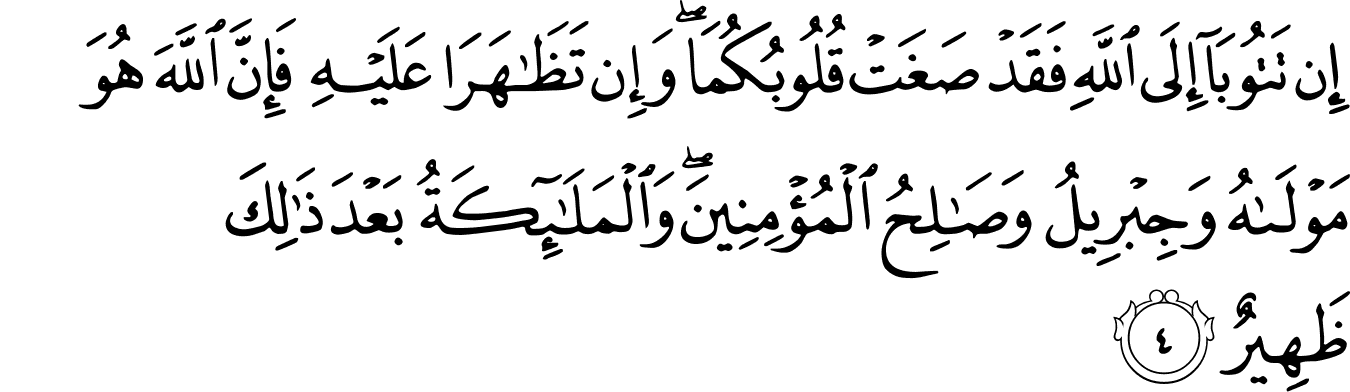 إِن تَتُوبَآ إِلَى ٱللَّهِ فَقَدْ صَغَتْ قُلُوبُكُمَا ۖ وَإِن تَظَـٰهَرَا عَلَيْهِ فَإِنَّ ٱللَّهَ هُوَ
مَوْلَىٰهُ وَجِبْرِيلُ وَصَـٰلِحُ ٱلْمُؤْمِنِينَ ۖ وَٱلْمَلَـٰٓئِكَةُ بَعْدَ ذَٰلِكَ
ظَهِيرٌ ٤